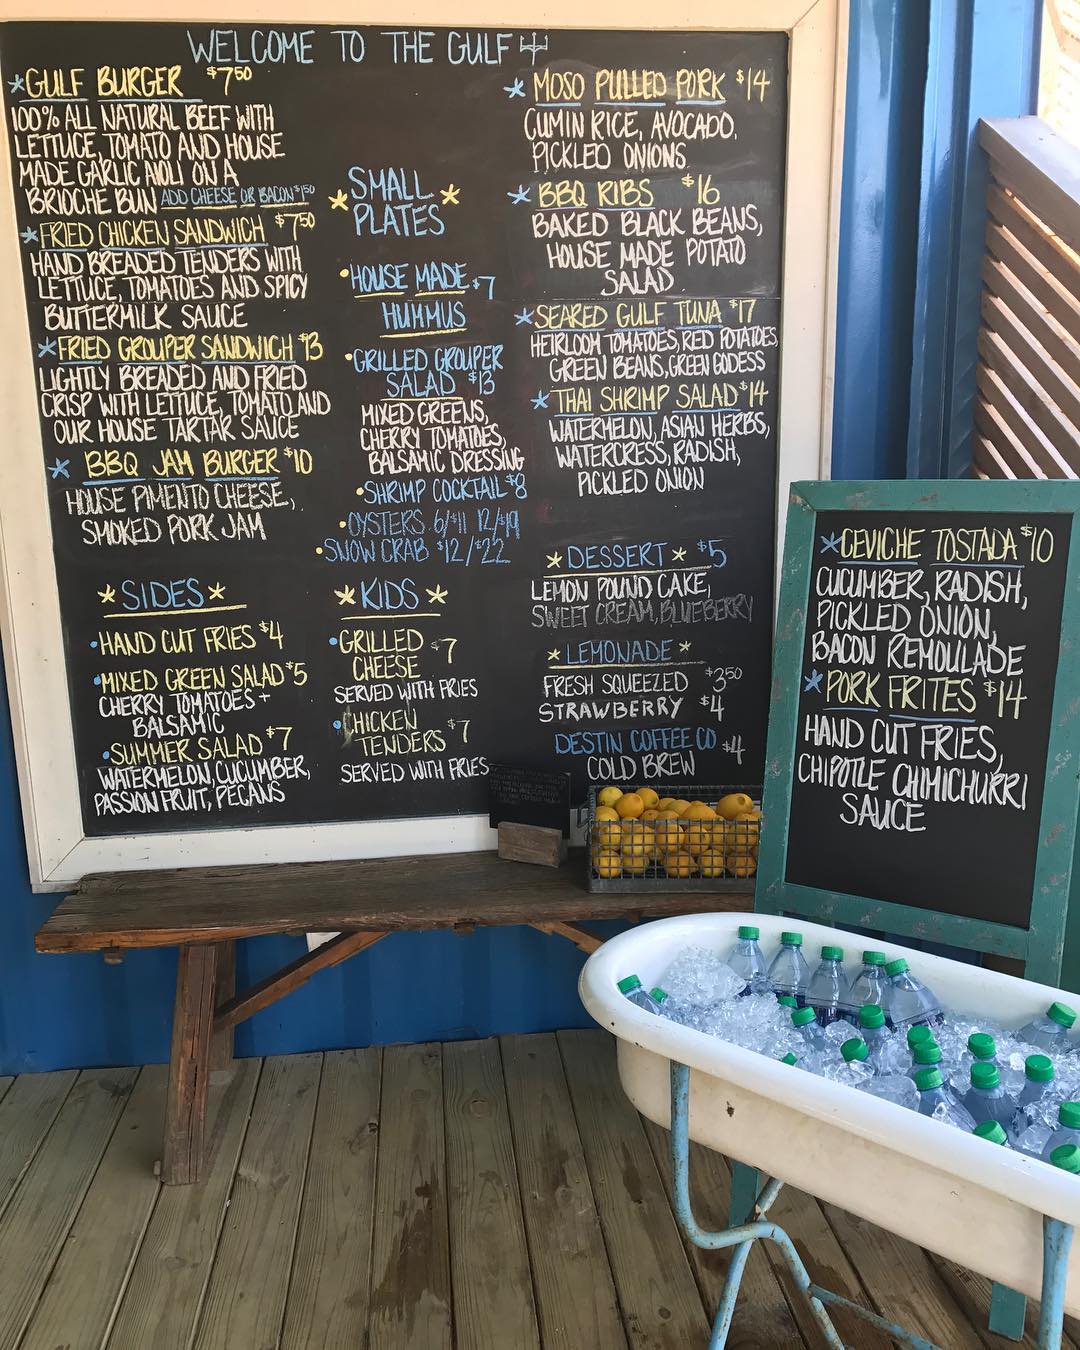 WELCOME TO THE GULF
*GULF BURGER $7.50
100% ALL NATURAL BEEF WITH
LETTUCE, TOMATO AND HOUSE
MADE GARLIC AIOLI ON A
BRIOCHE BUN ADD CHEESE OR BACON $1.50
*FRIED CHICKEN SANDWICH $7.50
HAND BREADED TENDERS WITH
LETTUCE, TOMATOES AND SPICY
BUTTERMILK SAUCE
*FRIED GROUPER SANDWICH $13
LIGHTLY BREADED AND FRIED
CRISP WITH LETTUCE, TOMATO AND
OUR HOUSE TARTAR SAUCE
*BBQ JAM BURGER $10
HOUSE PIMENTO CHEESE,
SMOKED PORK JAM
*SIDES*
•HAND CUT FRIES $4
•MIXED GREEN SALAD $5
CHERRY TOMATOES +
BALSAMIC
•SUMMER SALAD $7
WATERMELON, CUCUMBER,
PASSION FRUIT, PECANS
*SMALL
PLATES*
•HOUSE MADE $7
HUMMUS
•GRILLED GROUPER
SALAD $13
MIXED GREENS,
CHERRY TOMATOES,
BALSAMIC DRESSING
•SHRIMP COCKTAIL $8
•OYSTERS 6/$11 12/$19
•SNOW CRAB $12/$22
*KIDS*
•GRILLED $7
CHEESE
SERVED WITH FRIES
•CHICKEN
TENDERS $7
SERVED WITH FRIES
*MOSO PULLED PORK $14
CUMIN RICE, AVOCADO,
PICKLED ONIONS
*BBQ RIBS $16
BAKED BLACK BEANS,
HOUSE MADE POTATO
SALAD
*SEARED GULF TUNA $17
HEIRLOOM TOMATOES, RED POTATOES,
GREEN BEANS, GREEN GODESS
*THAI SHRIMP SALAD $14
WATERMELON, ASIAN HERBS,
WATERCRESS, RADISH,
PICKLED ONION
*DESSERT* $5
LEMON POUND CAKE,
SWEET CREAM, BLUEBERRY
*LEMONADE*
FRESH SQUEEZED $3.50
STRAWBERRY $4
DESTIN COFFEE CO $4
COLD BREW
*CEVICHE TOSTADA $10
CUCUMBER, RADISH,
PICKLED ONION,
BACON REMOULADE
*PORK FRITES $14
HAND CUT FRIES,
CHIPOTLE CHIMICHURRI
SAUCE